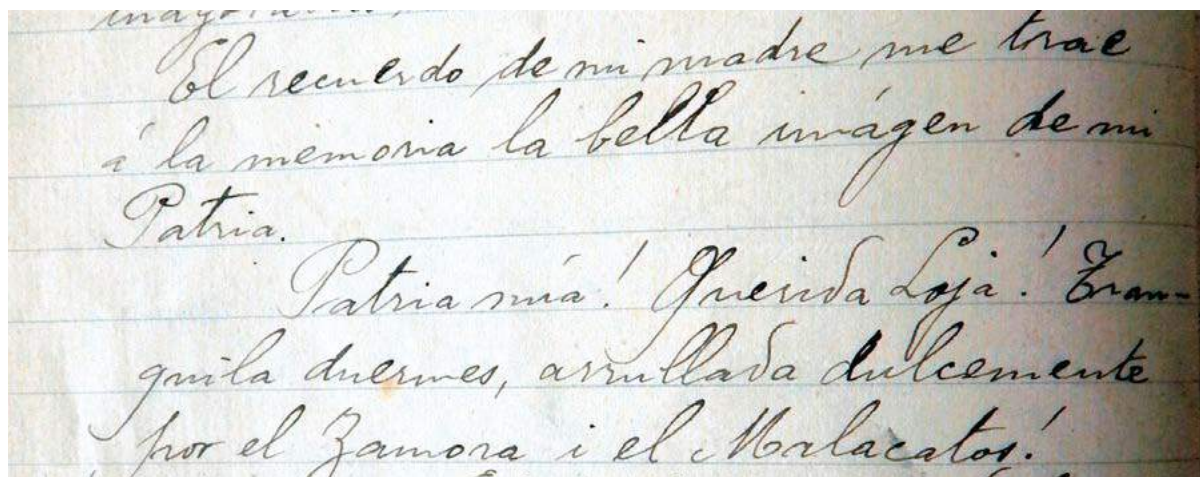 El recuerdo de mi madre me trae
á la memoria la bella imágen de mi
Patria.
Patria mía! Querida Loja! Tran-
quila duermes, arrullada dulcemente
por el Zamora i el Malacatos!